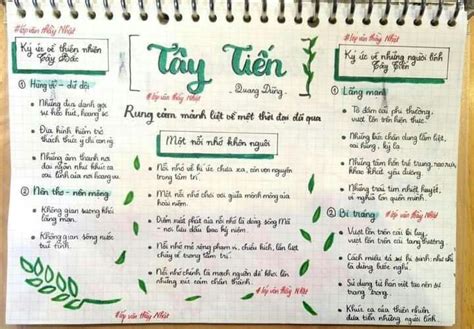 #lớp văn thầy Nhật
Ký ức về thiên nhiên
Tây Bắc
① Hùng vĩ - dữ dội
• Những địa danh gợi
sự heo hút, hoang sơ
• Địa hình hiểm trở
thách thức ý chí con ng
• Những âm thanh nơi
đại ngàn như khúc ca
② Nên thơ - nên mộng
• Không gian sương khói
lãng mạn.
• Không gian sông nước
trữ tình
#lớp văn thầy Nhật
[Tây Tiến]
- Quang Dũng -
#lớp văn thầy Nhật
Rung cảm mãnh liệt về một thời đại đã qua
Một nỗi nhớ khôn nguôi
• Nỗi nhớ về kí ức chưa xa, còn vẹn nguyên
trong tâm trí.
• Một nỗi nhớ chơi vơi giữa mênh mông của
hoài niệm.
• Điểm xuất phát của nỗi nhớ là dòng sông Mã
- nơi lưu dấu bao kỷ niệm.
• Nỗi nhớ mở rộng phạm vi, chiều kích, lan
chảy về trong tâm trí.
• Nỗi nhớ chính là mạch nguồn để khơi lên
những xúc cảm chân thành.
#lớp văn thầy Nhật
#lớp văn thầy Nhật
Ký ức về những người lính
Tây Tiến
① Lãng mạn
• Từ đám cái phi thường,
vượt lên trên hiện thực
• Những bức chân dung lẫm liệt,
oai hùng, kỳ lạ.
• Những tâm hồn trẻ trung,
khao khát yêu thương.
• Những trái tim nhiệt huyết,
vì nghĩa lớn quên mình.
② Bi tráng
#lớp văn thầy Nhật
• Vượt lên trên cái bi lụy,
vượt lên trên cái tang thương
• Cách miêu tả sự hi sinh: như chỉ
là dừng bước nghỉ.
• Sử dụng từ hán việt tạo nên sự
trang trọng.
• Khúc ca của thiên nhiên
đưa tiễn những người lính